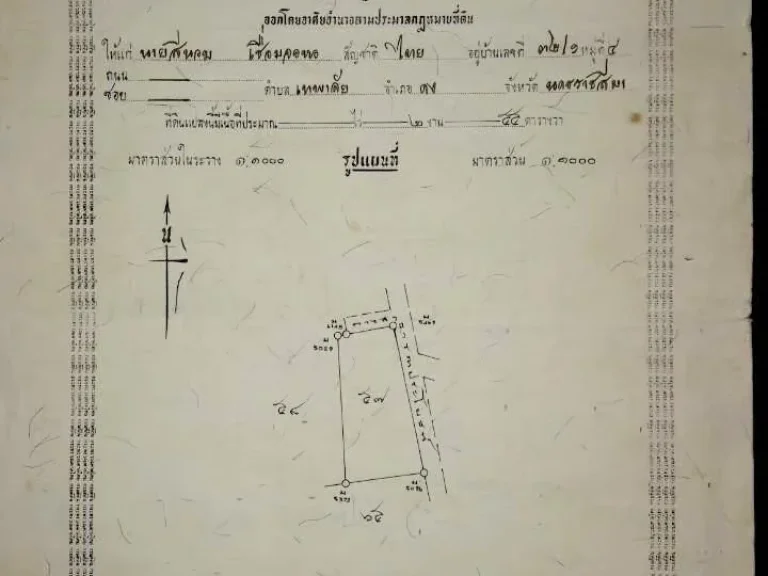 ออกโดยอาศัยอำนาจตามประมวลกฎหมายที่ดิน
ให้แก่ นายสีหวม เชื่อมจอหอ สัญชาติ ไทย อยู่บ้านเลขที่ ๓๒/๑ หมู่ที่ ๔
ถนน ตำบล เทพาลัย อำเภอ คง จังหวัด นครราชสีมา
ซอย
ที่ดินแปลงนี้มีเนื้อที่ประมาณ ไร่ ๒ งาน ๕๔ ตารางวา
มาตราส่วนในระวาง ๑:๑๐๐๐ รูปแผนที่ มาตราส่วน ๑:๑๐๐๐
น
ทางสาธารณประโยชน์
๕๘
๕๗
๖๕